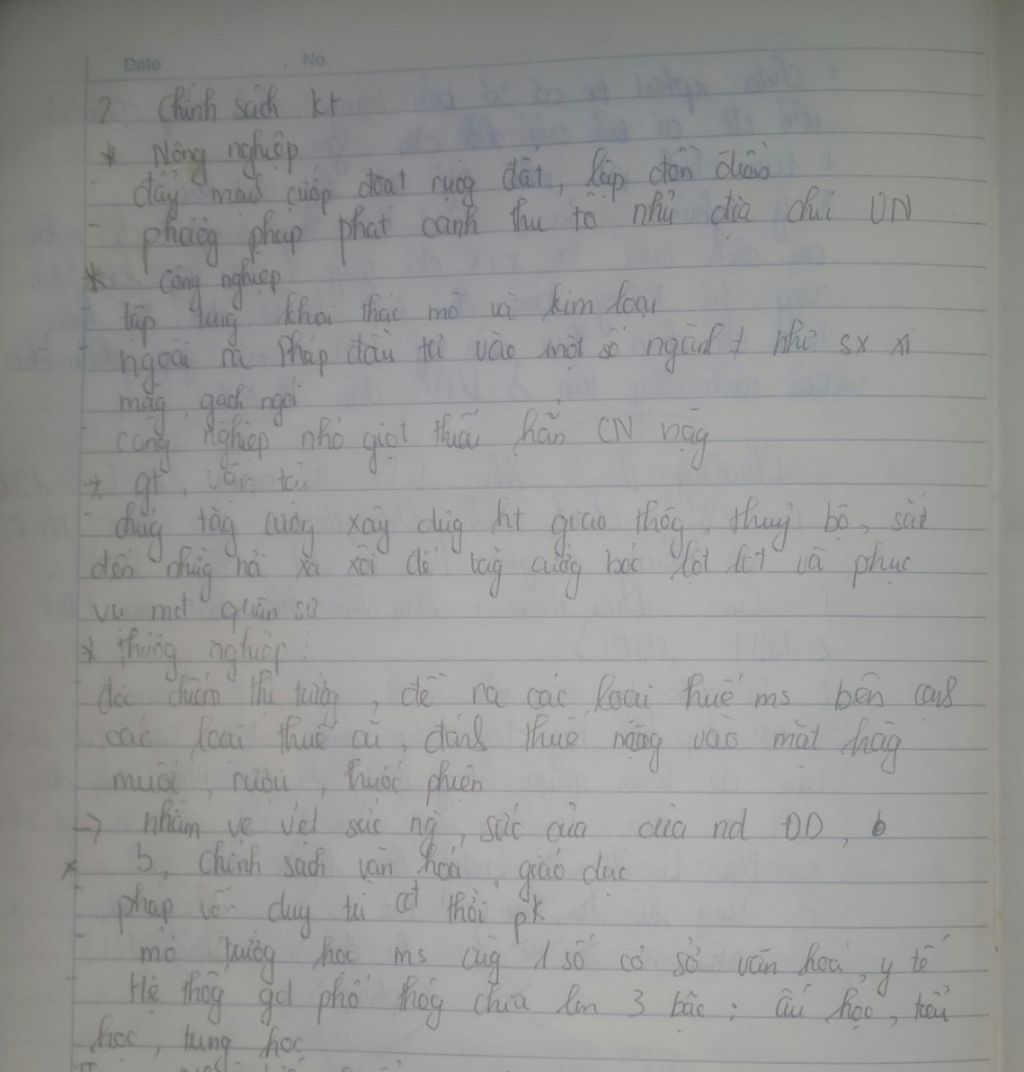 Date No.
2. Chính sách kt
* Nông nghiệp
- đẩy mah cướp đoạt ruộg đất, lập đồn điền
- phươg pháp phát canh thu tô như địa chủ VN
* Công nghiệp
- tập tug khai thác mỏ và kim loại
- ngoài ra Pháp đầu tư vào một số ngành ≠ như sx xi
măg, gạch ngói
- côg nghiệp nhỏ giọt thuái hẳn CN nặg
* gt, vận tải
- chúg tăg cườg xây dựg ht giao thôg, thuỷ bộ, sắt
đến nhữg nơi xa xôi để tăg cườg bóc lột kt và phục
vụ mđ quân sự
* thươg nghiệp:
độc chiếm thị trườg, đề ra các loại thuế ms bên cah
các loại thuế cũ, đánh thuế nặg vào mặt hàg
muối, rượu, thuốc phiện
-> nhằm vơ vét sức ng, sức của của nd ĐD,
* b, Chính sách văn hoá, giáo dục
- pháp vẫn duy trì cđ thời pk
- mở trườg học ms cùg 1 số cơ sở văn hoá, y tế
- Hệ thốg gd phổ thôg chia lm 3 bậc: ấu học, tiểu
học, tung học